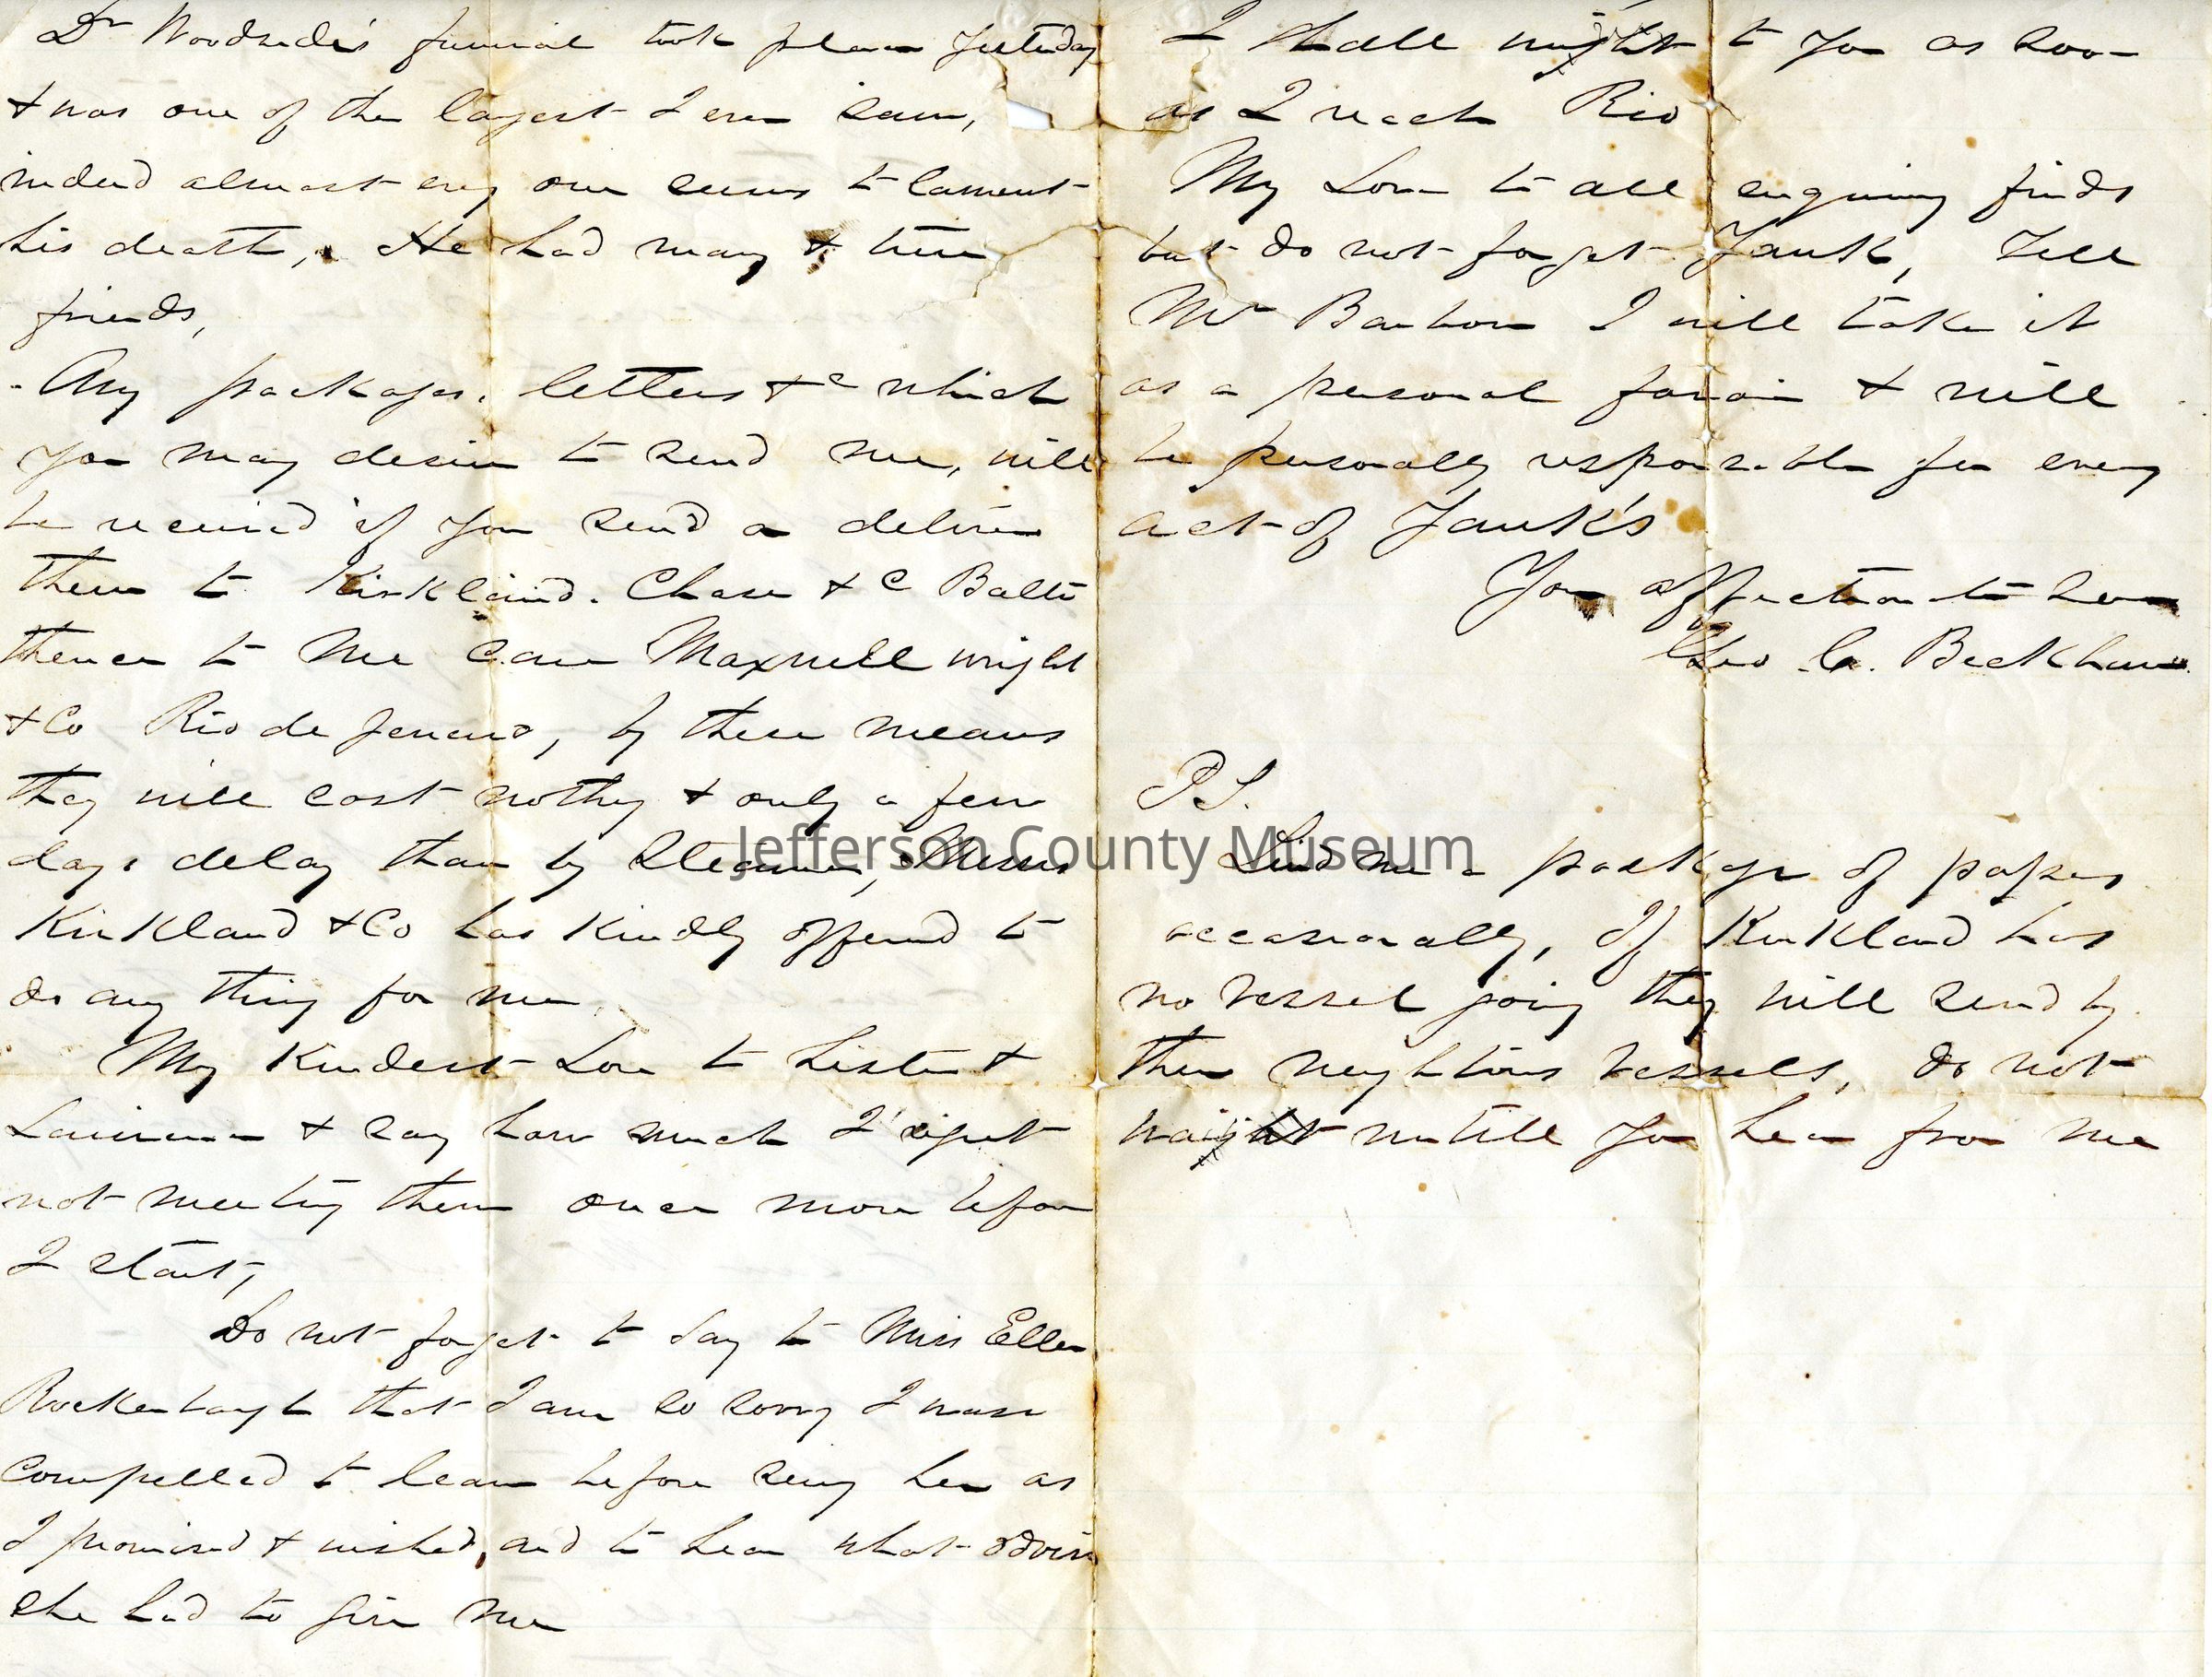 Dr Woodside's funeral took place yesterday
& was one of the largest I ever saw,
indeed almost every one seems to lament
his death, He had many & true
friends,
Any packages, letters &c which
you may desire to send me, will
be received if you send or deliver
them to Kirkland. Chase & C Balto
thence to me care Maxwell wright
& Co Rio de Janeiro, by these means
they will cost nothing & only a few
days delay than by Steamer, Messrs
Kirkland & Co has kindly offered to
do any thing for me.
My kindest Love to Sister &
& say how much I regret
not meeting them once more before
I start,
Do not forget to say to Miss Ellen
Rockenbaugh that I am so sorry I was
compelled to leave before seeing her as
I promised & wished, and to hear what advice
she had to give me
I shall wright to you as soon
as I reach Rio
My Love to all enquiring friends
but do not forget Yank, Tell
Mr I will take it
as a personal favor & will
be personally responsible for every
act of Yank's
Your affectionate Son
Geo. A. Beckham.
P.S.
Send me a package of papers
occasionally, If Kirkland has
no vessel going they will send by
there neighbors vessels, do not
wait untill you hear from me
Jefferson County Museum